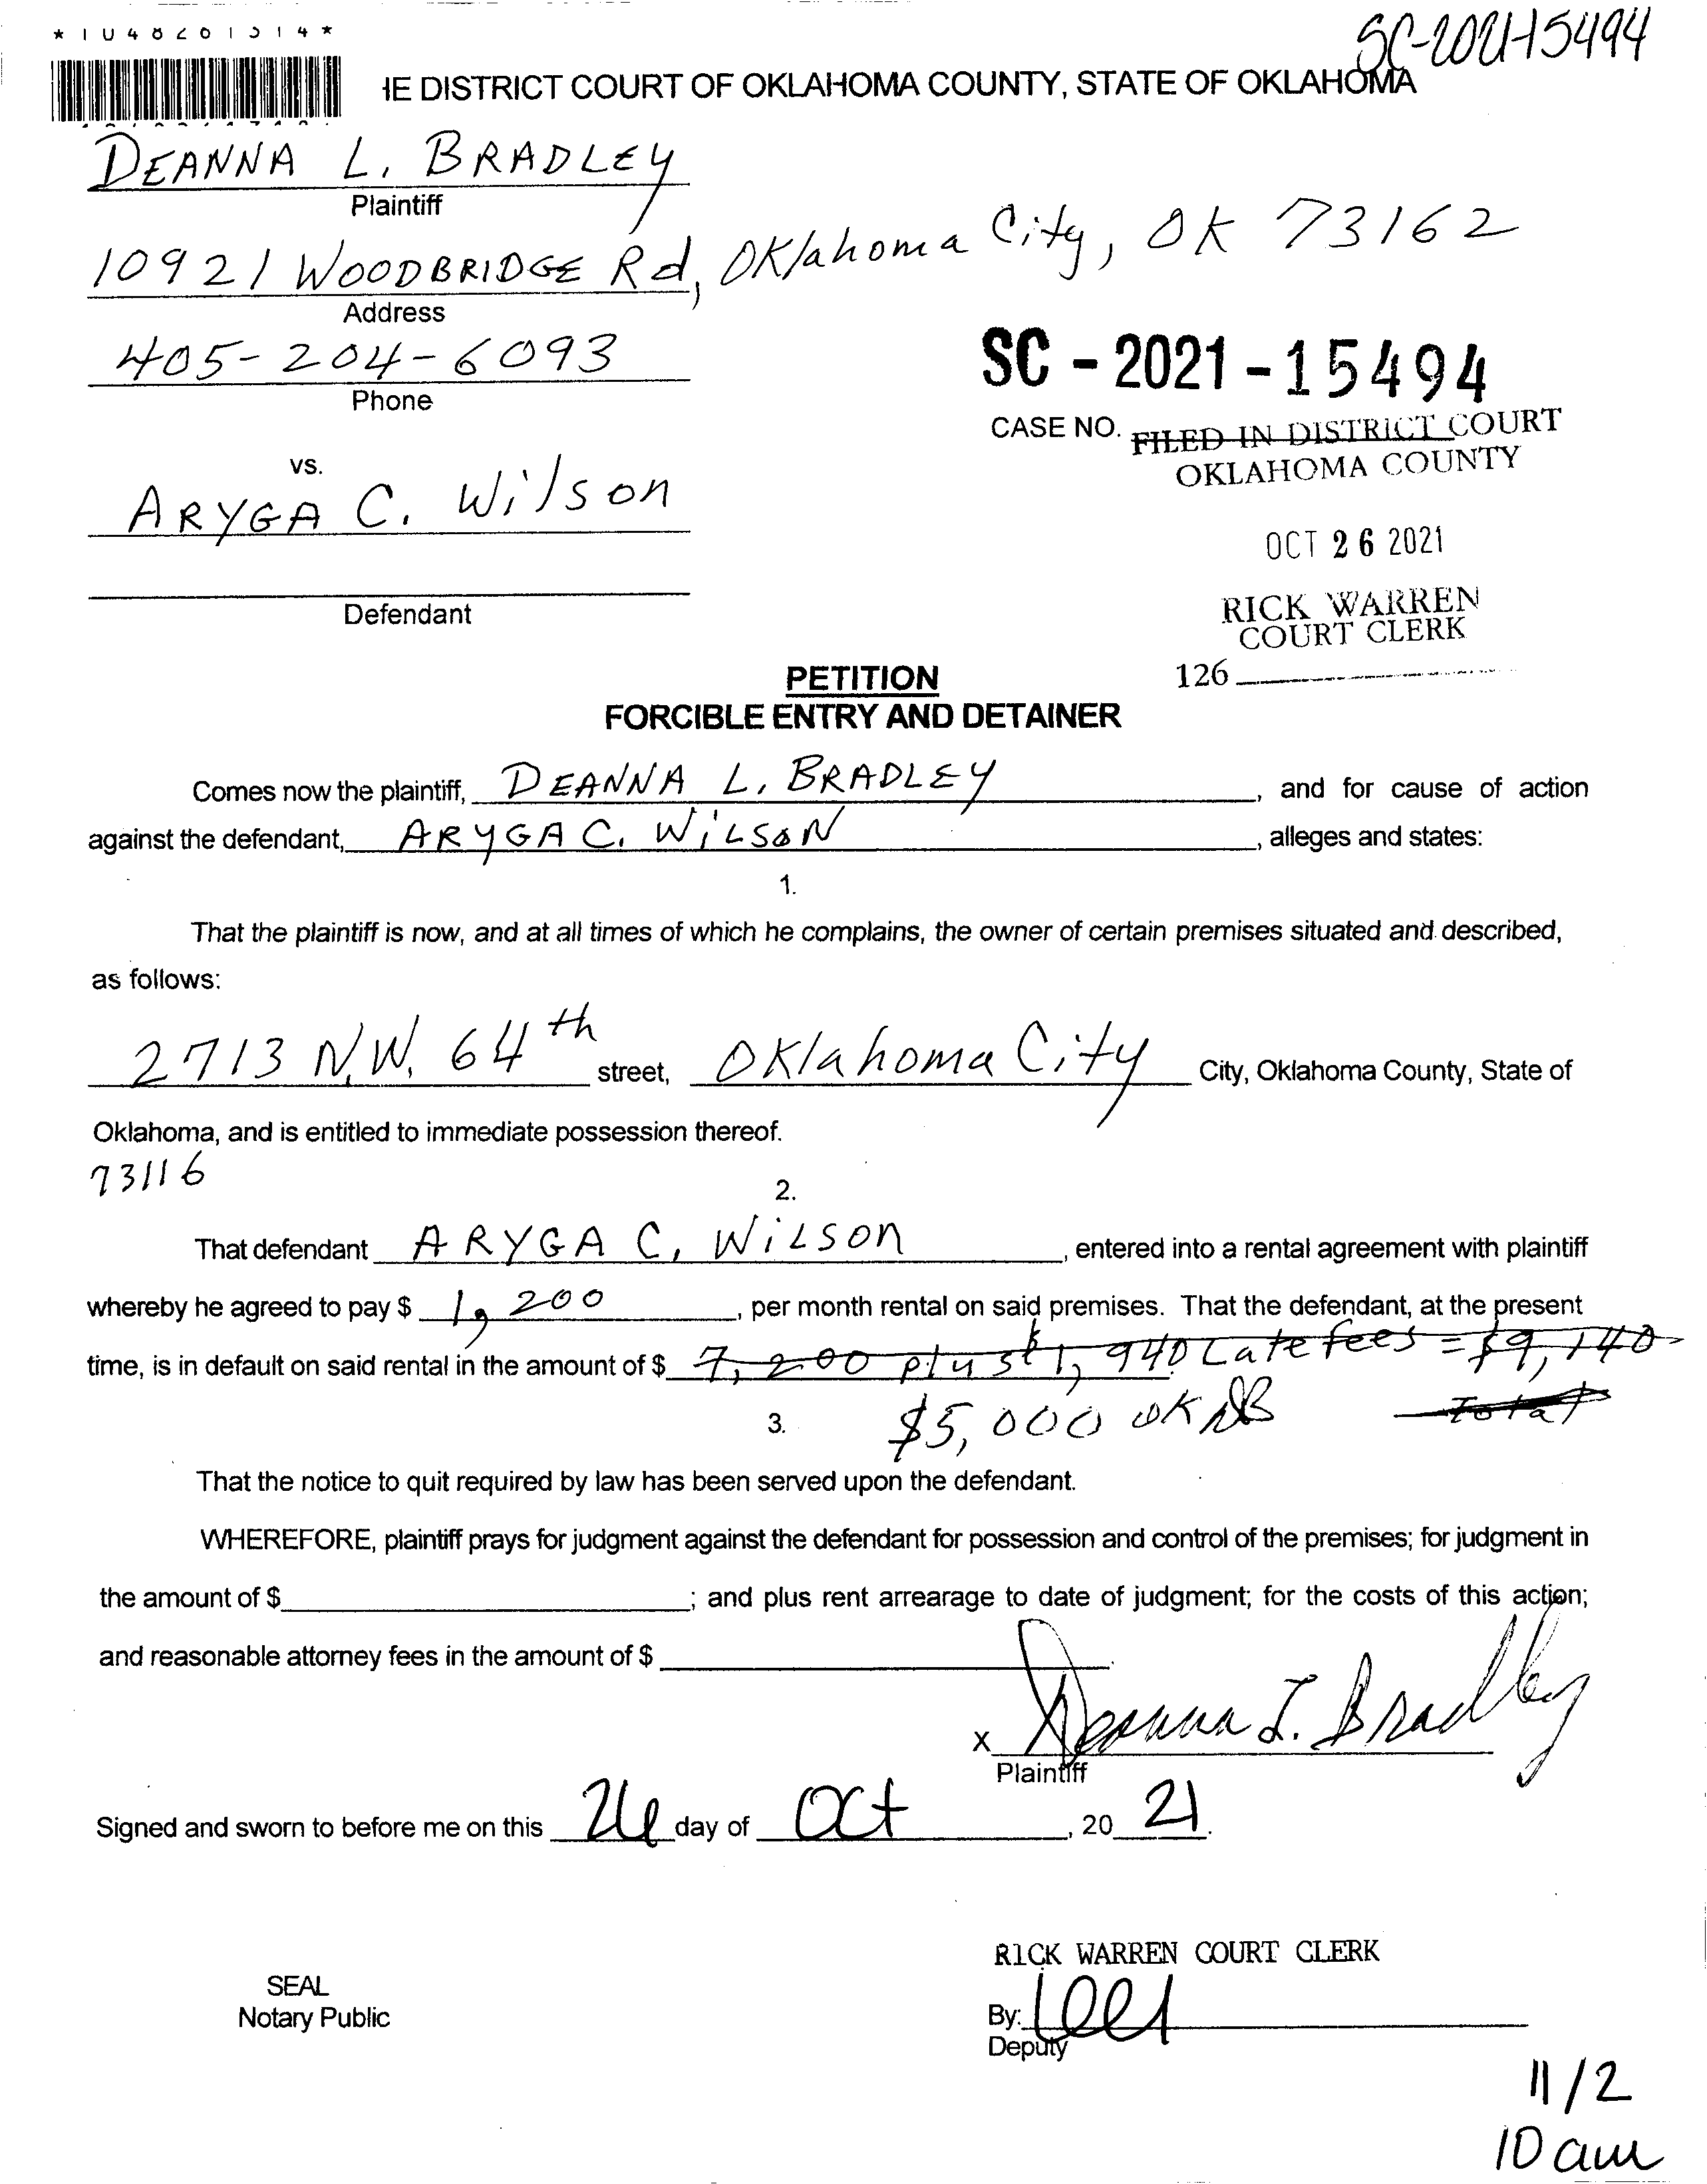 SC-2021-15494
*1048261314*
IE DISTRICT COURT OF OKLAHOMA COUNTY, STATE OF OKLAHOMA
DEANNA L. BRADLEY
Plaintiff
10921 WOODBRIDGE Rd, Oklahoma City, OK 73162
Address
405-204-6093
Phone
SC - 2021 - 15494
CASE NO.
FILED IN DISTRICT COURT
OKLAHOMA COUNTY
vs.
ARYGA C. Wilson
OCT 26 2021
Defendant
RICK WARREN
COURT CLERK
126
PETITION
FORCIBLE ENTRY AND DETAINER
Comes now the plaintiff, DEANNA L. BRADLEY, and for cause of action
against the defendant, ARYGA C. WiLSON, alleges and states:
1.
That the plaintiff is now, and at all times of which he complains, the owner of certain premises situated and described,
as follows:
2713 N.W. 64th street, Oklahoma City City, Oklahoma County, State of
Oklahoma, and is entitled to immediate possession thereof.
73116
2.
That defendant ARYGA C. WiLSON, entered into a rental agreement with plaintiff
whereby he agreed to pay $ 1,200, per month rental on said premises. That the defendant, at the present
time, is in default on said rental in the amount of $ 7,200 plus $1,940 Late fees = $9,140
Total
3. $5,000 OK DB
That the notice to quit required by law has been served upon the defendant.
WHEREFORE, plaintiff prays for judgment against the defendant for possession and control of the premises; for judgment in
the amount of $ ; and plus rent arrearage to date of judgment; for the costs of this action;
and reasonable attorney fees in the amount of $ .
X Deanna L. Bradley
Plaintiff
Signed and sworn to before me on this 26 day of Oct, 20 21.
RICK WARREN COURT CLERK
SEAL
Notary Public
By:
Deputy
11/2
10 am